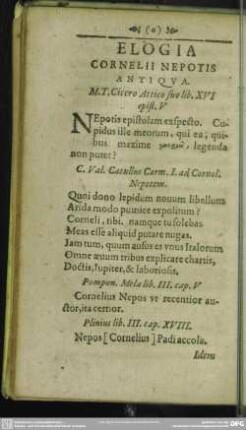 (o)
ELOGIA
CORNELII NEPOTIS
ANTIQVA.
M.T. Cicero Attico suo lib. XVI
epist. V
NEpotis epistolam exspecto. Cu-
pidus ille meorum, qui ea, qui-
bus maxime legenda
non putet?
C. Val. Catullus Carm. I. ad Cornel.
Nepotem.
Quoi dono lepidum nouum libellum
Arida modo pumice expolitum?
Corneli, tibi. namque tu solebas
Meas esse aliquid putare nugas.
Jam tum, quum ausus es vnus Italorum
Omne æuum tribus explicare chartis,
Doctis, Jupiter, & laboriosis.
Pompon. Mela lib. III. cap. V
Cornelius Nepos vt recentior au-
ctor, ita certior.
Plinius lib. III. cap. XVIII.
Nepos [Cornelius] Padi accola.
Idem